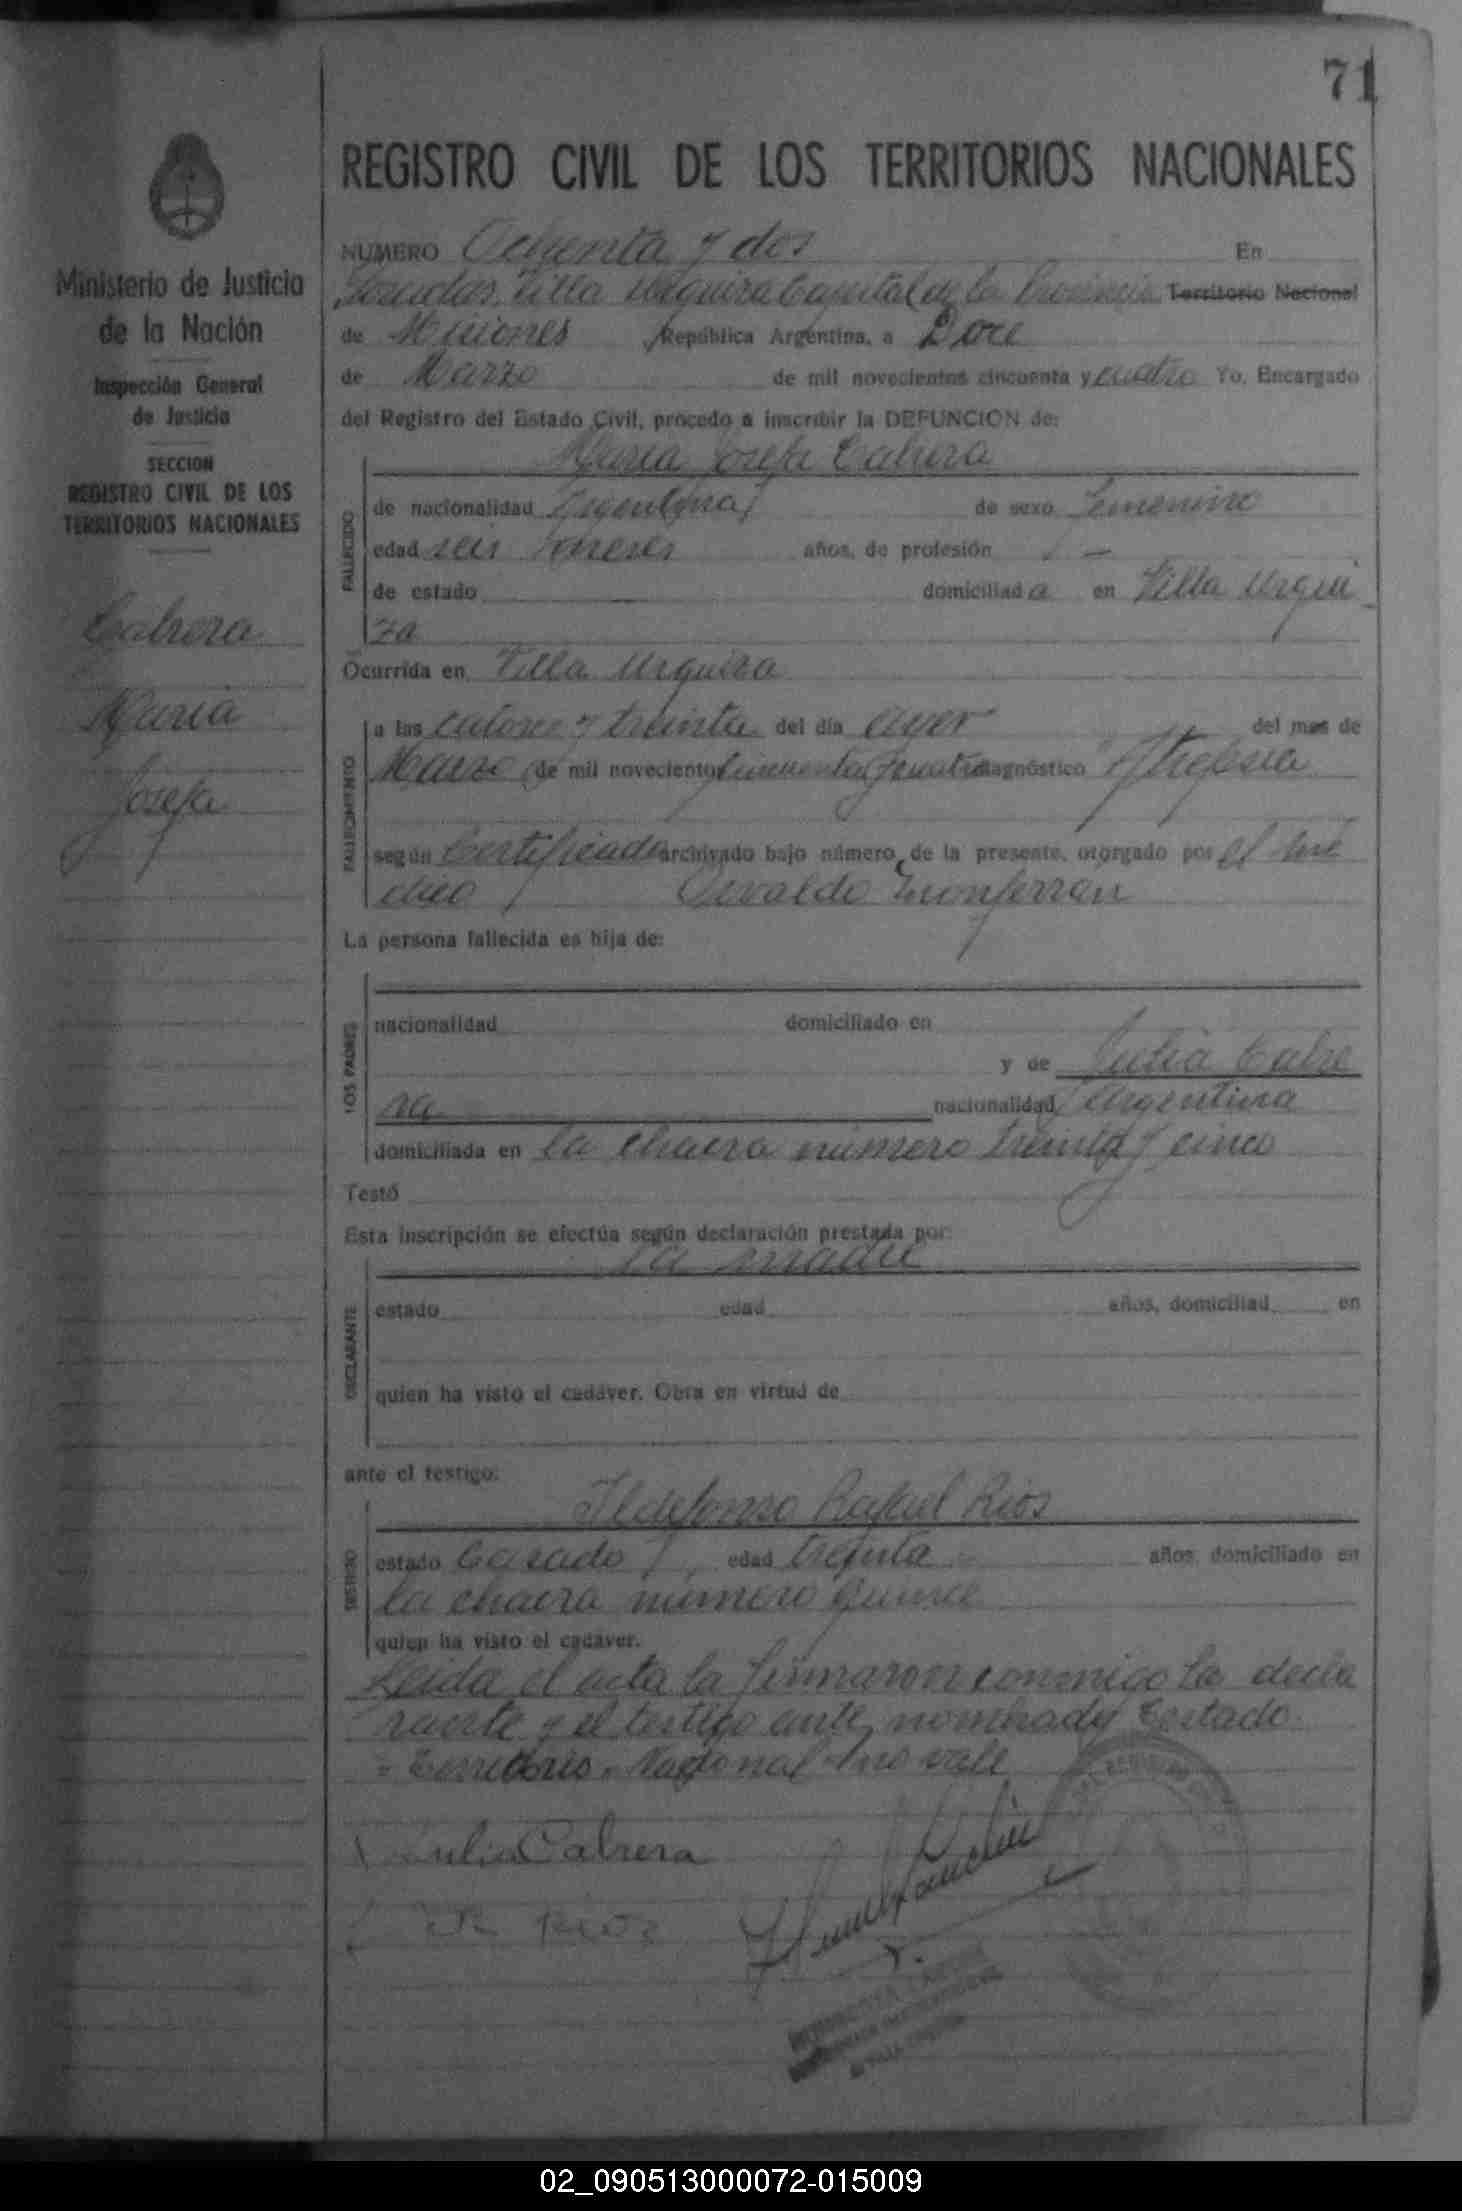 71
REGISTRO CIVIL DE LOS TERRITORIOS NACIONALES
Ministerio de Justicia
de la Nación
Inspección General
de Justicia
SECCION
REGISTRO CIVIL DE LOS
TERRITORIOS NACIONALES
Cabrera
Maria
Josefa
NUMERO Ochenta y dos En
Posadas, Villa Urquiza Capital de la Provincia Territorio Nacional
de Misiones República Argentina, a Doce
de Marzo de mil novecientos cincuenta y cuatro Yo, Encargado
del Registro del Estado Civil, procedo a inscribir la DEFUNCION de:
Maria Josefa Cabrera
FALLECIDO
de nacionalidad Argentina de sexo Femenino
edad seis meses años, de profesión —
de estado — domiciliada en Villa Urqui
za
Ocurrida en Villa Urquiza
FALLECIMIENTO
a las catorce y treinta del día ayer del mes de
Marzo de mil novecientos cincuenta y cuatro diagnóstico
según Certificado archivado bajo número de la presente, otorgado por el mé
dico Osvaldo Monferran
La persona fallecida es hija de:
LOS PADRES
nacionalidad domiciliado en
y de Julia Cabre
ra nacionalidad argentina
domiciliada en la chacra número treinta y cinco
Testó
Esta inscripción se efectúa según declaración prestada por:
la madre
DECLARANTE
estado edad años, domiciliad en
quien ha visto el cadáver. Obra en virtud de
ante el testigo:
Ildefonso Rafael Rios
TESTIGO
estado Casado edad treinta años, domiciliado en
la chacra número quince
quien ha visto el cadáver.
Leida el acta la firmaron conmigo la decla
rante y el testigo ante nombrado Testado
"Territorio Nacional" no vale
Julia Cabrera
02_090513000072-015009